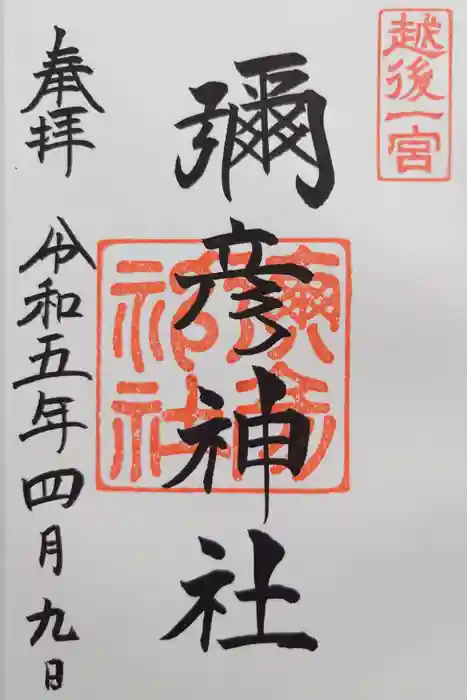 越後一宮
彌彦神社
奉拝
令和五年四月九日
彌彦
神社